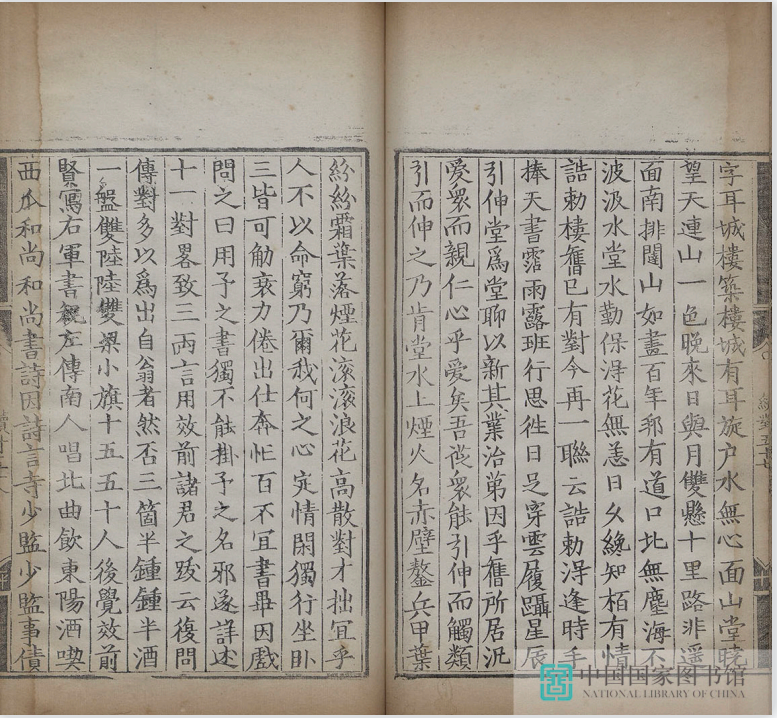 字耳城樓築樓城有耳旋户水無心面山堂曉
望天連山一色晚來日與月雙懸十里路非遥
面南排闥山如畫百年郛有道口北無塵海不
波汲水堂水勤保淂花無恙日乆纔知栢有情
誥勅樓舊已有對今再一聯云誥勅淂逢時手
捧天書霑雨露班行思徃日足穿雲履躡星辰
引伸堂爲堂聊以新其業治第因乎舊所居汎
愛衆而親仁心乎愛矣吾從衆能引伸而觸類
引而伸之乃肯堂水上煙火名赤壁鏊兵甲葉
紛紛霜葉落煙花滚滚浪花高散對才拙宜乎
人不以命窮乃爾㢤何之心㝎情閑獨行坐卧
三皆可觔衰力倦出仕奔忙百不宜書畢因戲
問之曰用予之書獨不能掛予之名邪遂詳述
十一對畧致三兩言用效前諸君之跋云復問
傳對多以爲出自翁者然否三箇半鍾鍾半酒
一盤雙陸陸雙梁小旗十五五十人後覺效前
賢寫右軍書左傳南人唱北曲飲東陽酒喫
西瓜和尚和尚書詩因詩言寺少監少監事債
續對五十七
中国国家图书馆
NATIONAL LIBRARY OF CHINA